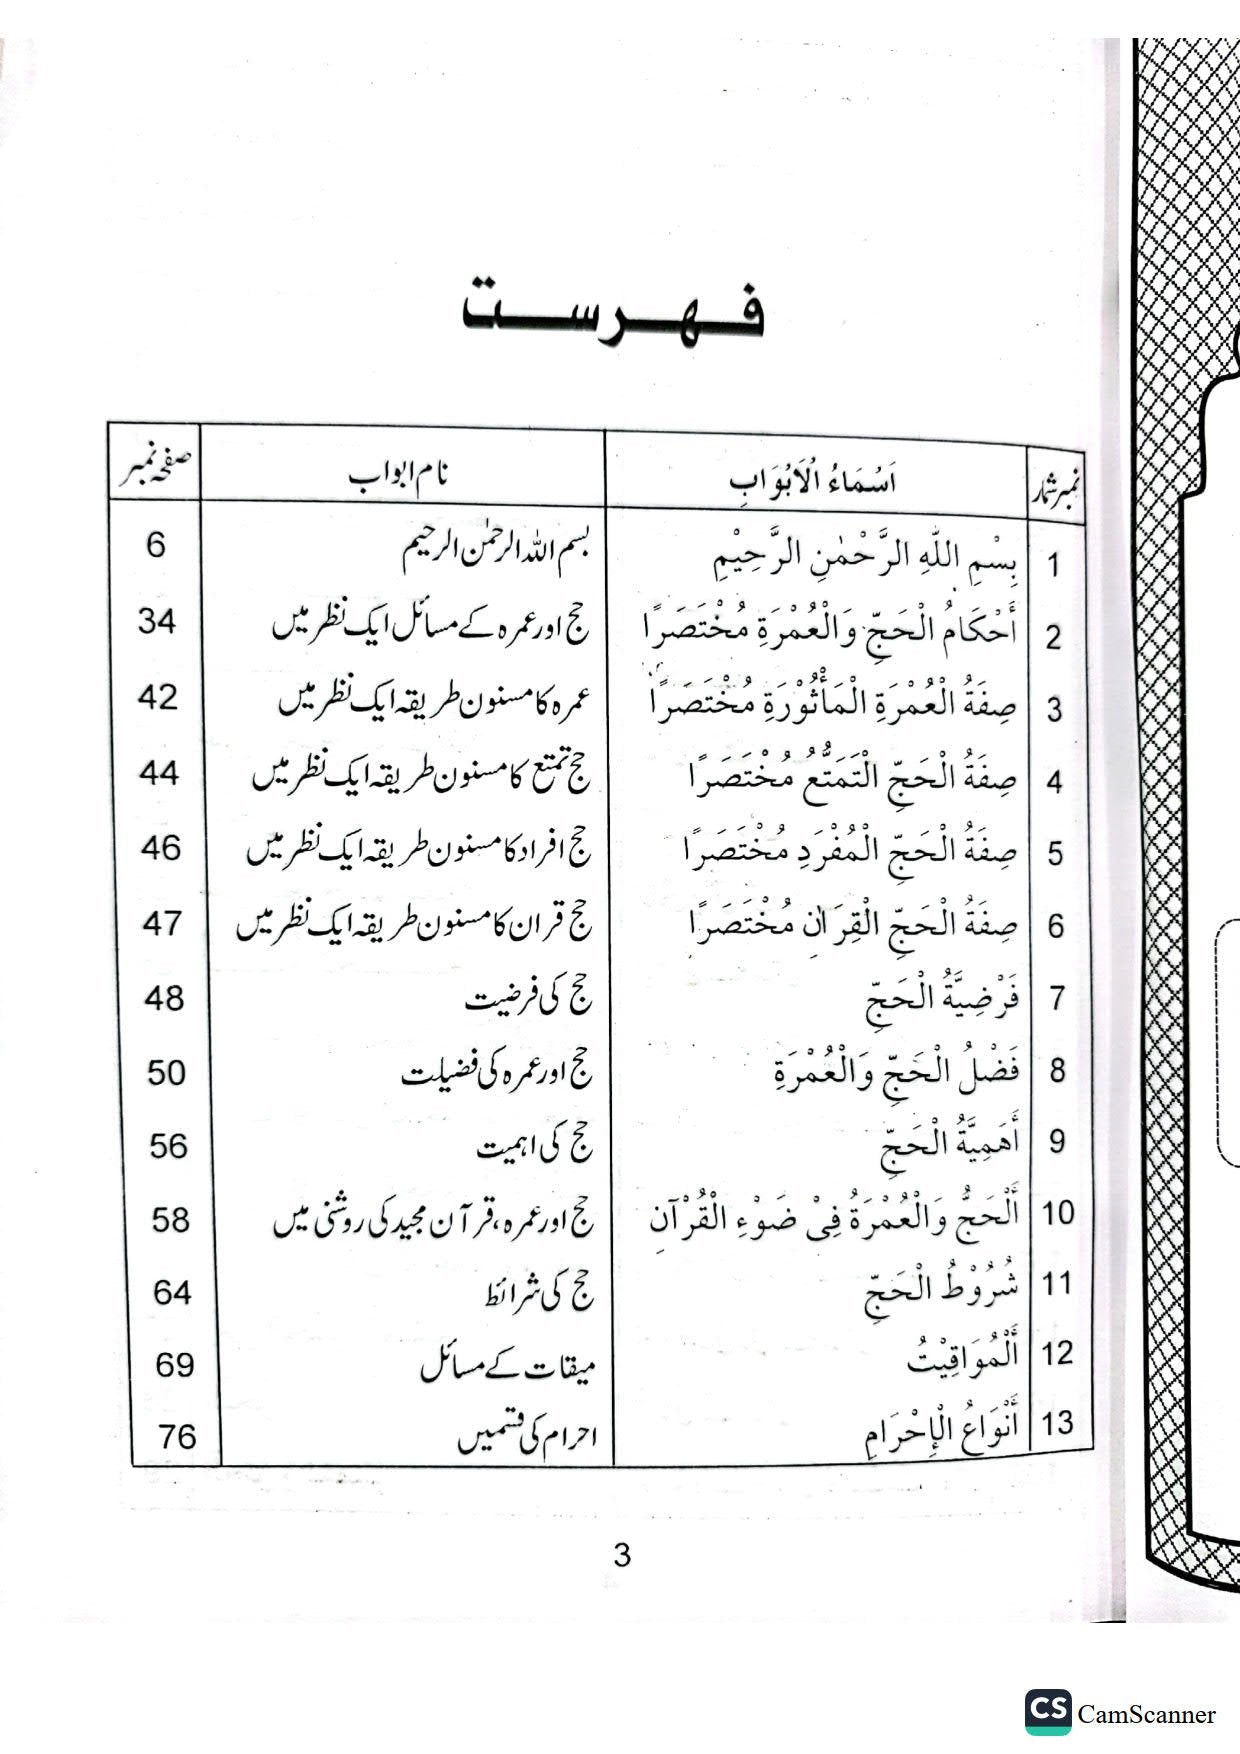 فہرست
نمبر شمار اَسْمَاءُ الْاَبْوَابِ نام ابواب صفحہ نمبر
1 بِسْمِ اللّٰهِ الرَّحْمٰنِ الرَّحِيْمِ بسم اللہ الرحمٰن الرحیم 6
2 أَحْكَامُ الْحَجِّ وَالْعُمْرَةِ مُخْتَصَرًا حج اور عمرہ کے مسائل ایک نظر میں 34
3 صِفَةُ الْعُمْرَةِ الْمَأْثُوْرَةِ مُخْتَصَرًا عمرہ کا مسنون طریقہ ایک نظر میں 42
4 صِفَةُ الْحَجِّ الْتَمَتُّعُ مُخْتَصَرًا حج تمتع کا مسنون طریقہ ایک نظر میں 44
5 صِفَةُ الْحَجِّ الْمُفْرَدِ مُخْتَصَرًا حج افراد کا مسنون طریقہ ایک نظر میں 46
6 صِفَةُ الْحَجِّ الْقِرَانِ مُخْتَصَرًا حج قران کا مسنون طریقہ ایک نظر میں 47
7 فَرْضِيَّةُ الْحَجِّ حج کی فرضیت 48
8 فَضْلُ الْحَجِّ وَالْعُمْرَةِ حج اور عمرہ کی فضیلت 50
9 أَهَمِيَّةُ الْحَجِّ حج کی اہمیت 56
10 أَلْحَجُّ وَالْعُمْرَةُ فِيْ ضَوْءِ الْقُرْآنِ حج اور عمرہ، قرآن مجید کی روشنی میں 58
11 شُرُوْطُ الْحَجِّ حج کی شرائط 64
12 أَلْمُوَاقِيْتُ میقات کے مسائل 69
13 أَنْوَاعُ الْإِحْرَامِ احرام کی قسمیں 76
3
CS CamScanner